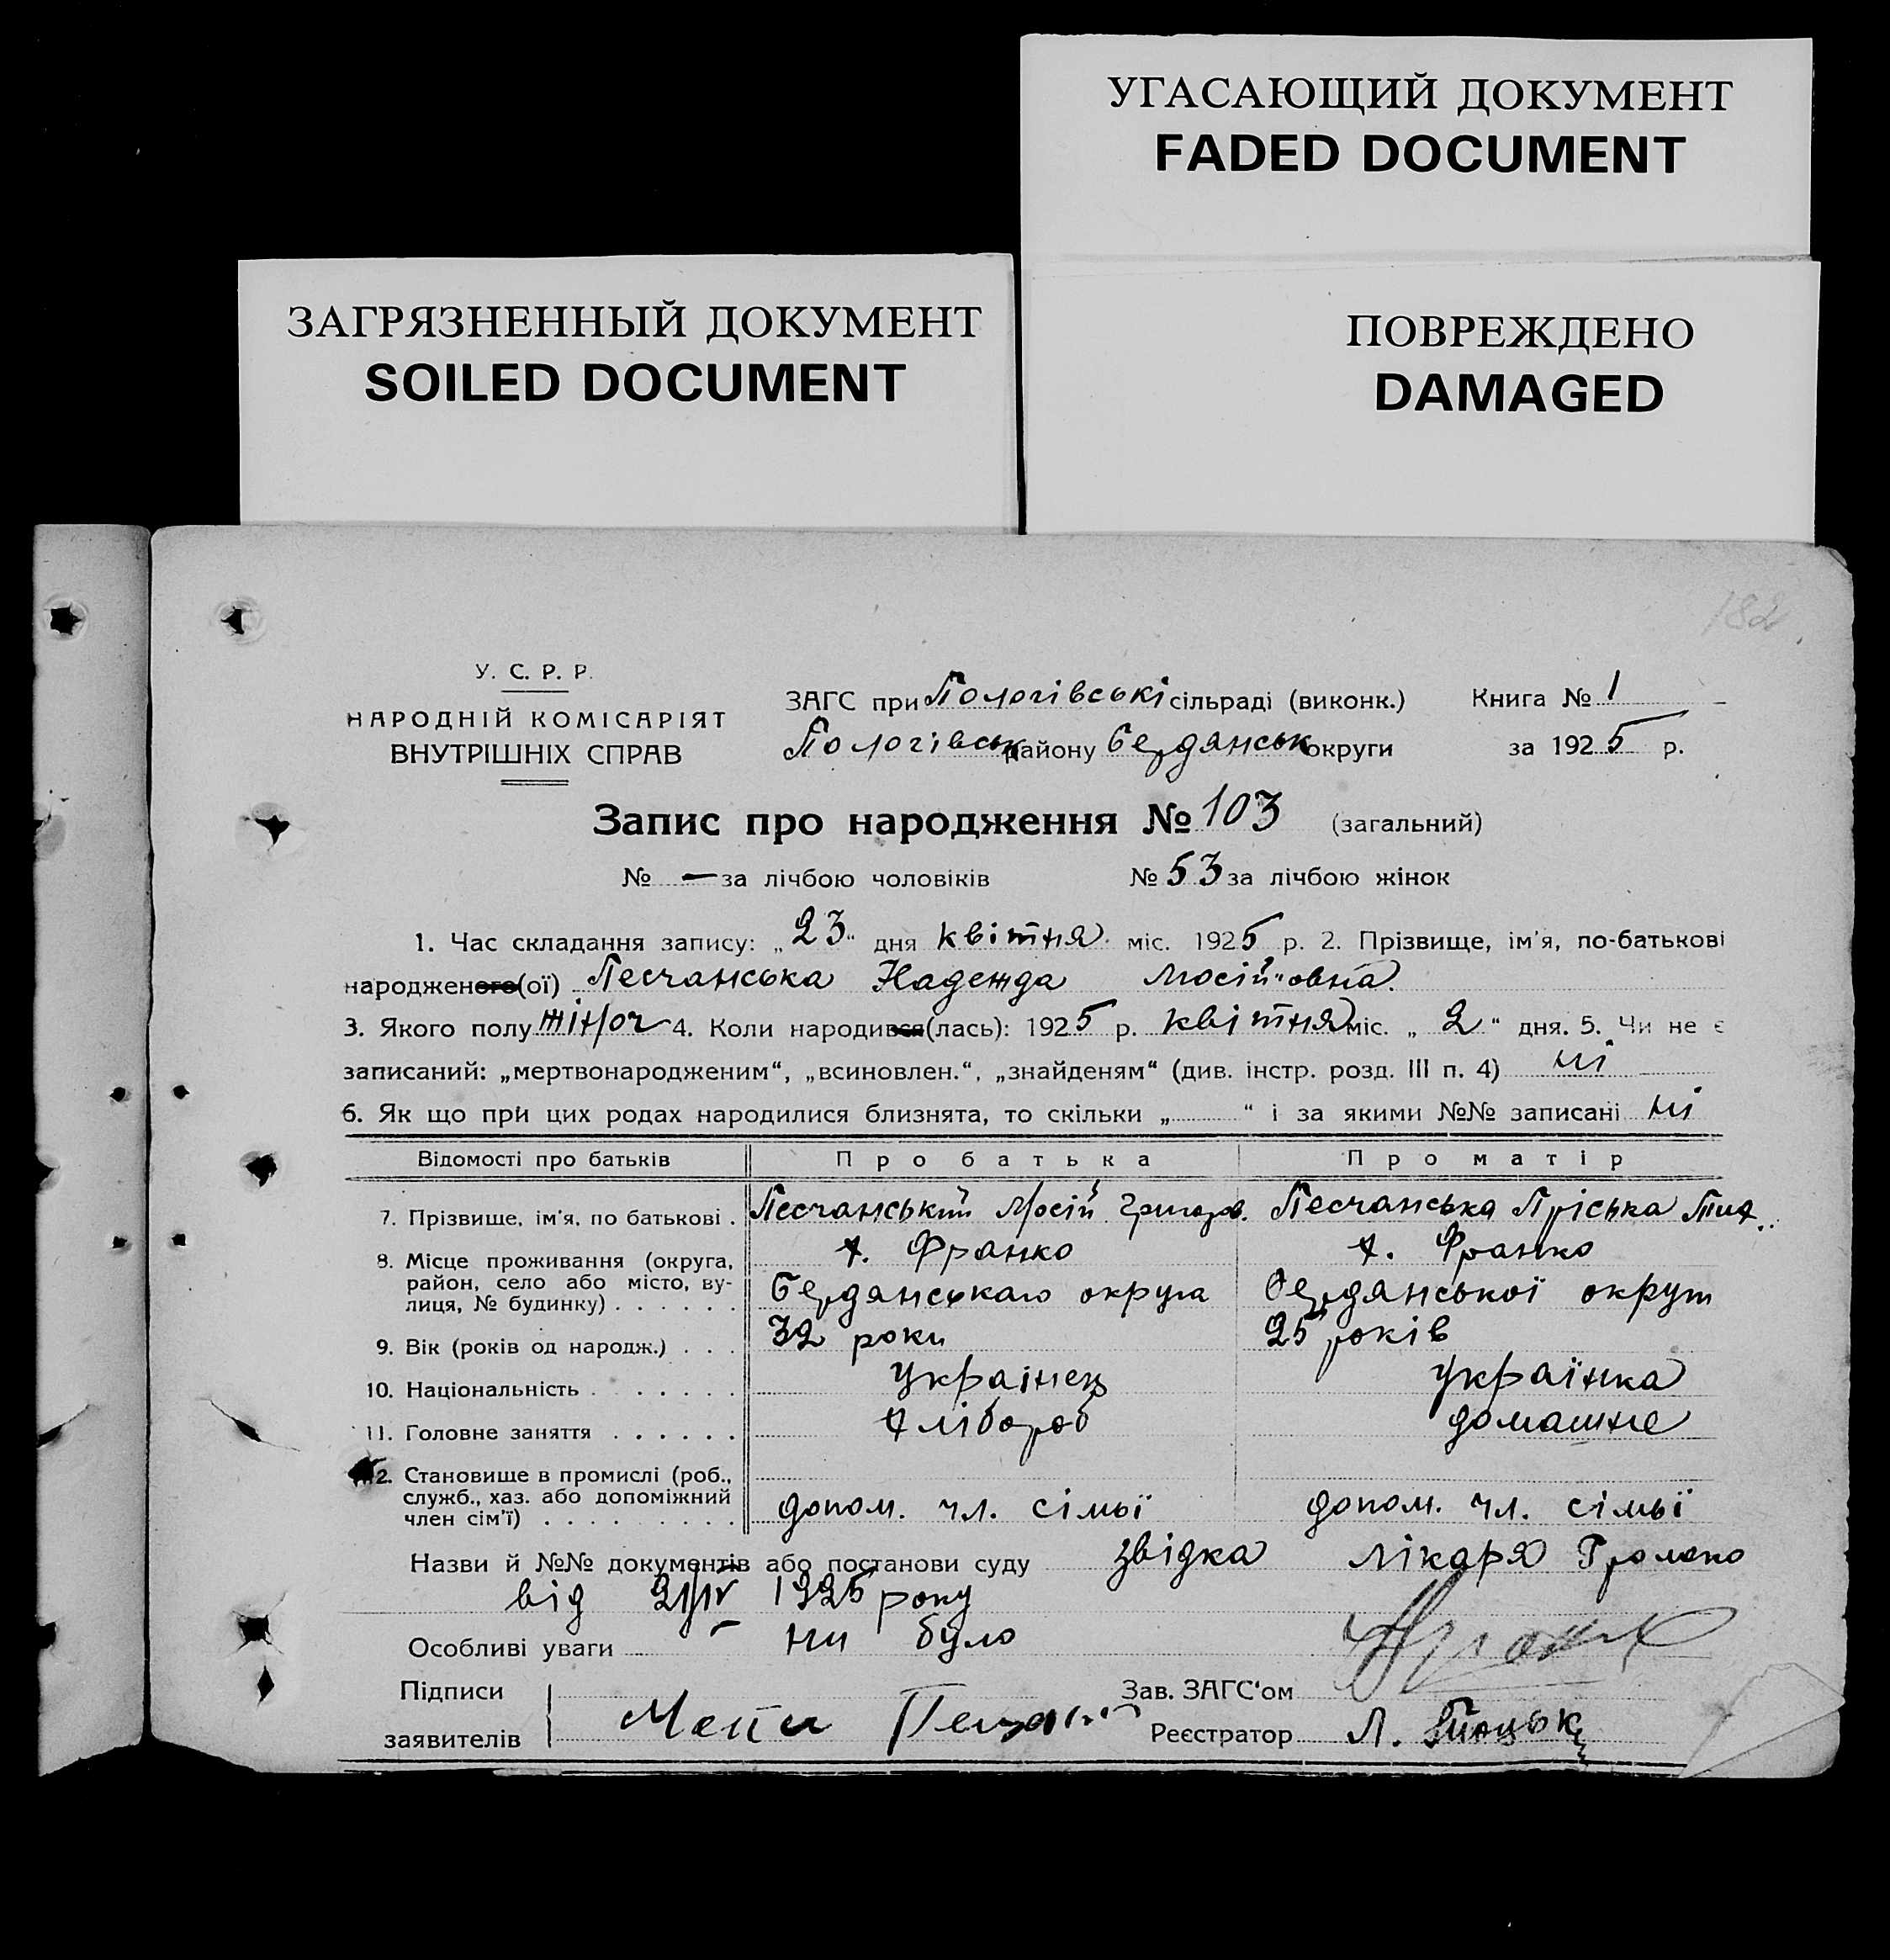 УГАСАЮЩИЙ ДОКУМЕНТ
FADED DOCUMENT
ЗАГРЯЗНЕННЫЙ ДОКУМЕНТ
SOILED DOCUMENT
ПОВРЕЖДЕНО
DAMAGED
182
У. С. Р. Р.
НАРОДНІЙ КОМІСАРІЯТ
ВНУТРІШНІХ СПРАВ
ЗАГС при Пологівські сільраді (виконк.) Книга № 1
Пологівськ району Бердянськ округи за 1925 р.
Запис про народження № 103 (загальний)
№ — за лічбою чоловіків № 53 за лічбою жінок
1. Час складання запису: „23“ дня квітня міс. 1925 р. 2. Прізвище, ім'я, по-батькові
народженого(ої) Песчанська Надежда Мосійовна.
3. Якого полу жіноч 4. Коли народився(лась): 1925 р. квітня міс. „2“ дня. 5. Чи не є
записаний: „мертвонародженим“, „всиновлен.“, „знайденям“ (див. інстр. розд. III п. 4) ні
6. Як що при цих родах народилися близнята, то скільки „ “ і за якими №№ записані ні
Відомості про батьків Про батька Про матір
7. Прізвище, ім'я, по батькові . Песчанський Мосій Григоров. Песчанська Пріська
8. Місце проживання (округа, х. Франко х. Франко
район, село або місто, ву-
лиця, № будинку) . . . . . . Бердянськаго округа Бердянської округи
9. Вік (років од народж.) . . . 32 роки 25 років
10. Національність . . . . . . . Українець українка
11. Головне заняття . . . . . . хлібороб домашнє
12. Становище в промислі (роб.,
служб., хаз. або допоміжний
член сім'ї) . . . . . . . . . допом. чл. сімьї допом. чл. сімьї
Назви й №№ документів або постанови суду звідка лікаря
від 2/IV 1925 року
Особливі уваги — ни було
Підписи Зав. ЗАГС'ом
заявителів Реєстратор Л.